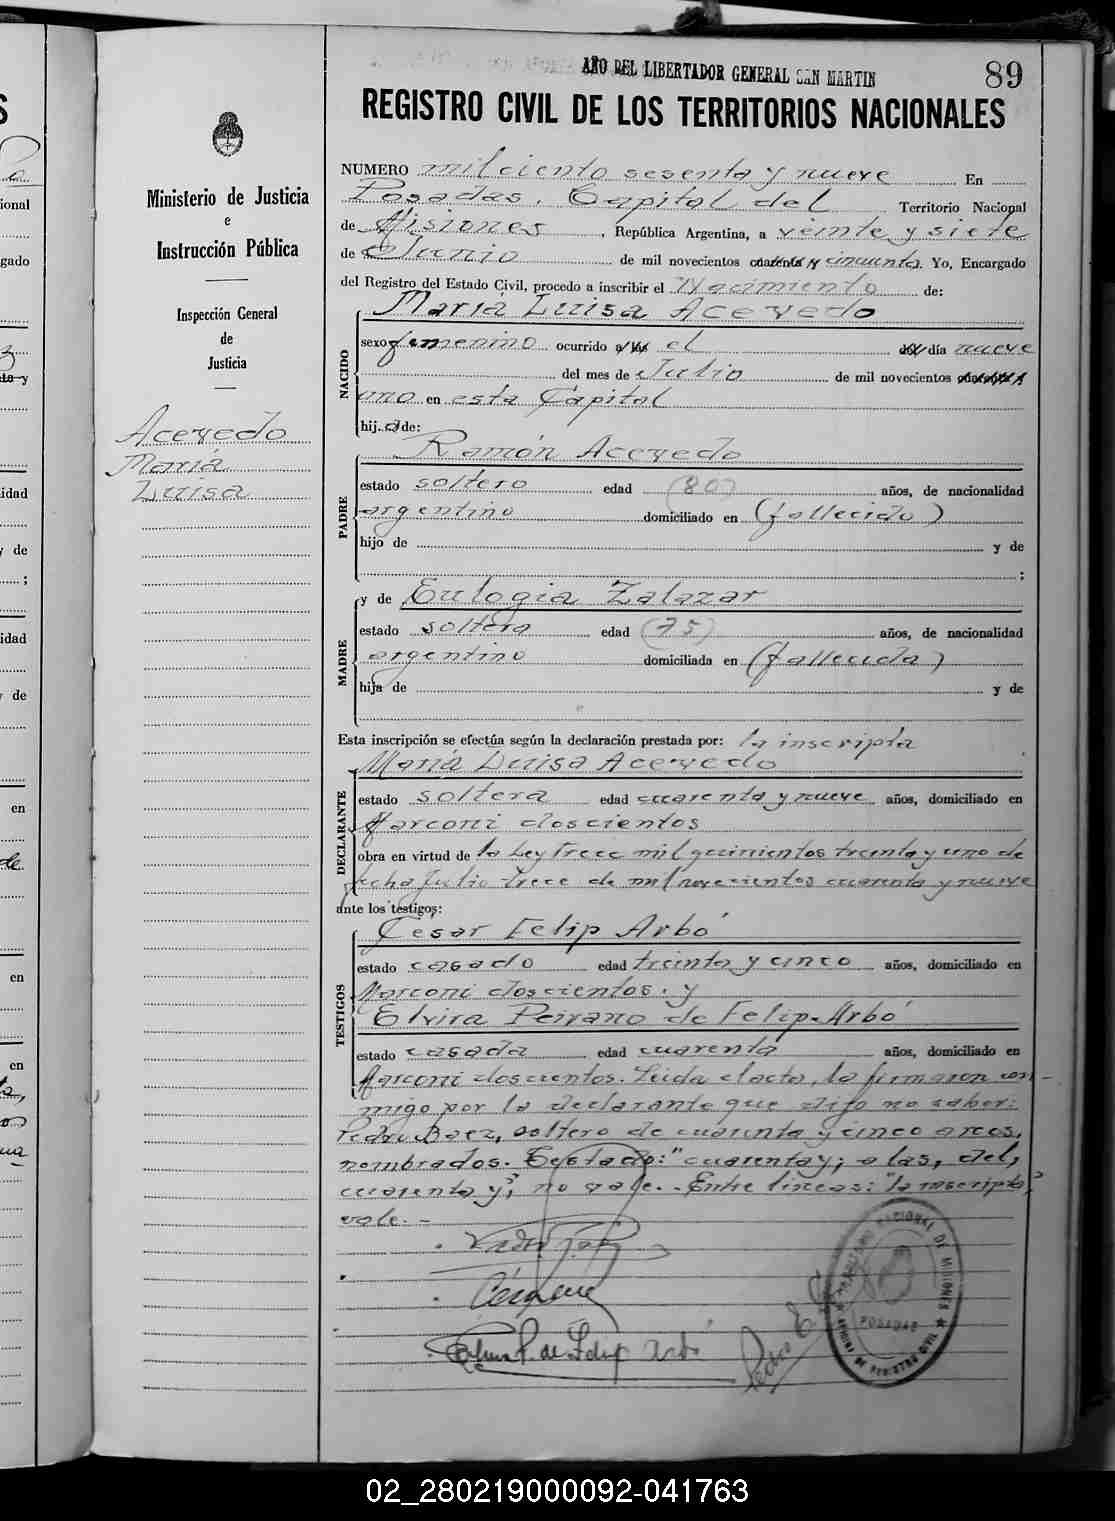 AÑO DEL LIBERTADOR GENERAL SAN MARTIN
89
REGISTRO CIVIL DE LOS TERRITORIOS NACIONALES
Ministerio de Justicia
e
Instrucción Pública
Inspección General
de
Justicia
Acevedo
María
Luisa
NUMERO mil ciento sesenta y nueve En
Posadas, Capital del Territorio Nacional
de Misiones, República Argentina, a veinte y siete
de Junio de mil novecientos cuarenta y cincuenta. Yo, Encargado
del Registro del Estado Civil, procedo a inscribir el Nacimiento de:
NACIDO
María Luisa Acevedo
sexo femenino ocurrido a las el del día nueve
del mes de Julio de mil novecientos cuarenta y
uno en esta Capital
hij.a de:
PADRE
Ramón Acevedo
estado soltero edad (80) años, de nacionalidad
argentino domiciliado en (fallecido)
hijo de y de
;
MADRE
y de Eulogia Zalazar
estado soltera edad (75) años, de nacionalidad
argentino domiciliada en (fallecida)
hija de y de
Esta inscripción se efectúa según la declaración prestada por: la inscripta
DECLARANTE
María Luisa Acevedo
estado soltera edad cuarenta y nueve años, domiciliado en
Marconi doscientos
obra en virtud de la Ley Trece mil quinientos treinta y uno de
fecha Julio trece de mil novecientos cuarenta y nueve
ante los testigos:
TESTIGOS
César Felip Arbó
estado casado edad treinta y cinco años, domiciliado en
Marconi doscientos. y
Elvira Peirano de Felip-Arbó
estado casada edad cuarenta años, domiciliado en
Marconi doscientos. Leida el acta, la firmaron con-
migo por la declarante que dijo no saber:
Pedro Baez, soltero de cuarenta y cinco años,
nombrados. Testado: "cuarenta y; a las, del,
cuarenta y", no vale. - Entre líneas: "la inscripta"
vale. -
P. de Felip Arbó
Pedro E.
TERRITORIO NACIONAL DE MISIONES
POSADAS
OFICINA DE REGISTRO CIVIL
02_280219000092-041763